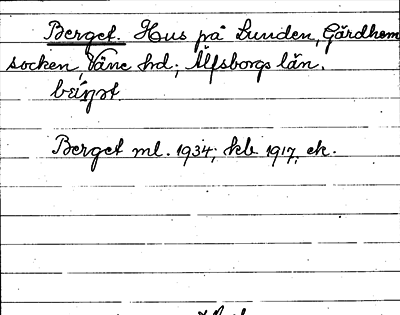 Berget. Hus på Lunden, Gärdhem
socken, Väne hd; Älfsborgs län.
Berget ml. 1934; kb 1917, ek.